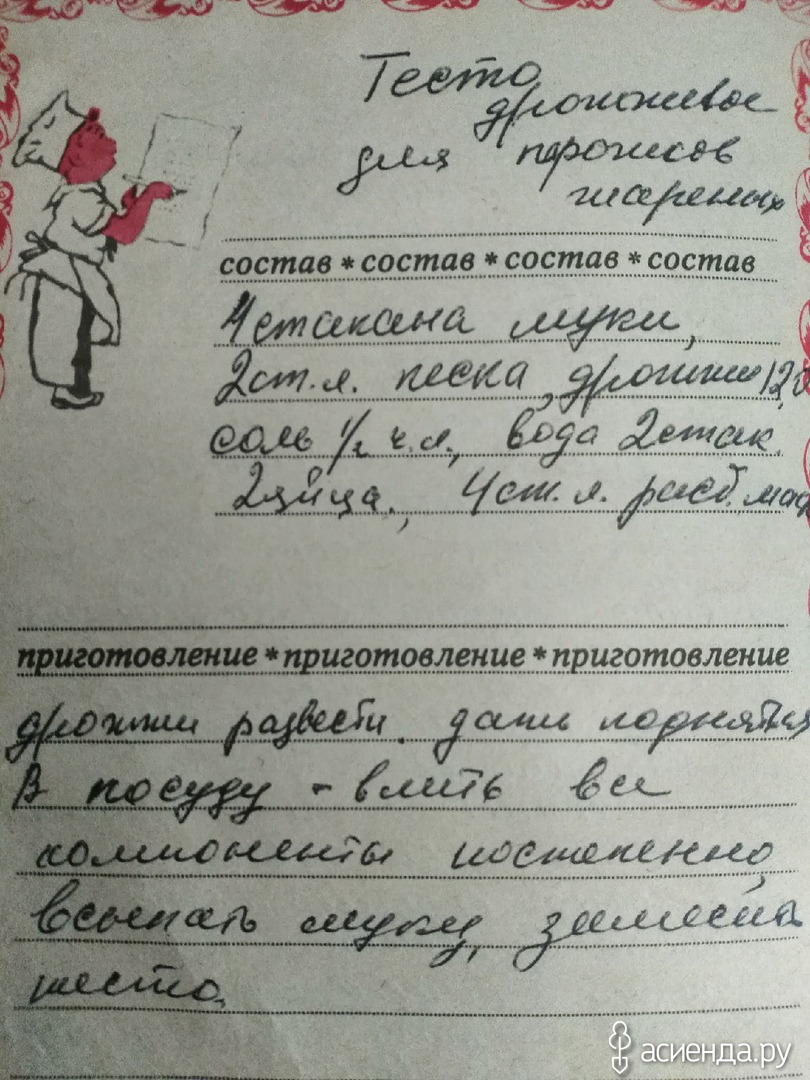 Тесто
дрожжевое
для пирожков
жареных
состав * состав * состав * состав
4 стакана муки,
2 ст. л. песка, дрожжи 12
соль 1/2 ч. л., вода 2 стак.
2 яйца., 4 ст. л. раст. мас
приготовление * приготовление * приготовление
дрожжи развести. дать подняться
В посуду - влить все
компоненты постепенно,
всыпать муку, замесить
тесто.
асиенда.ру